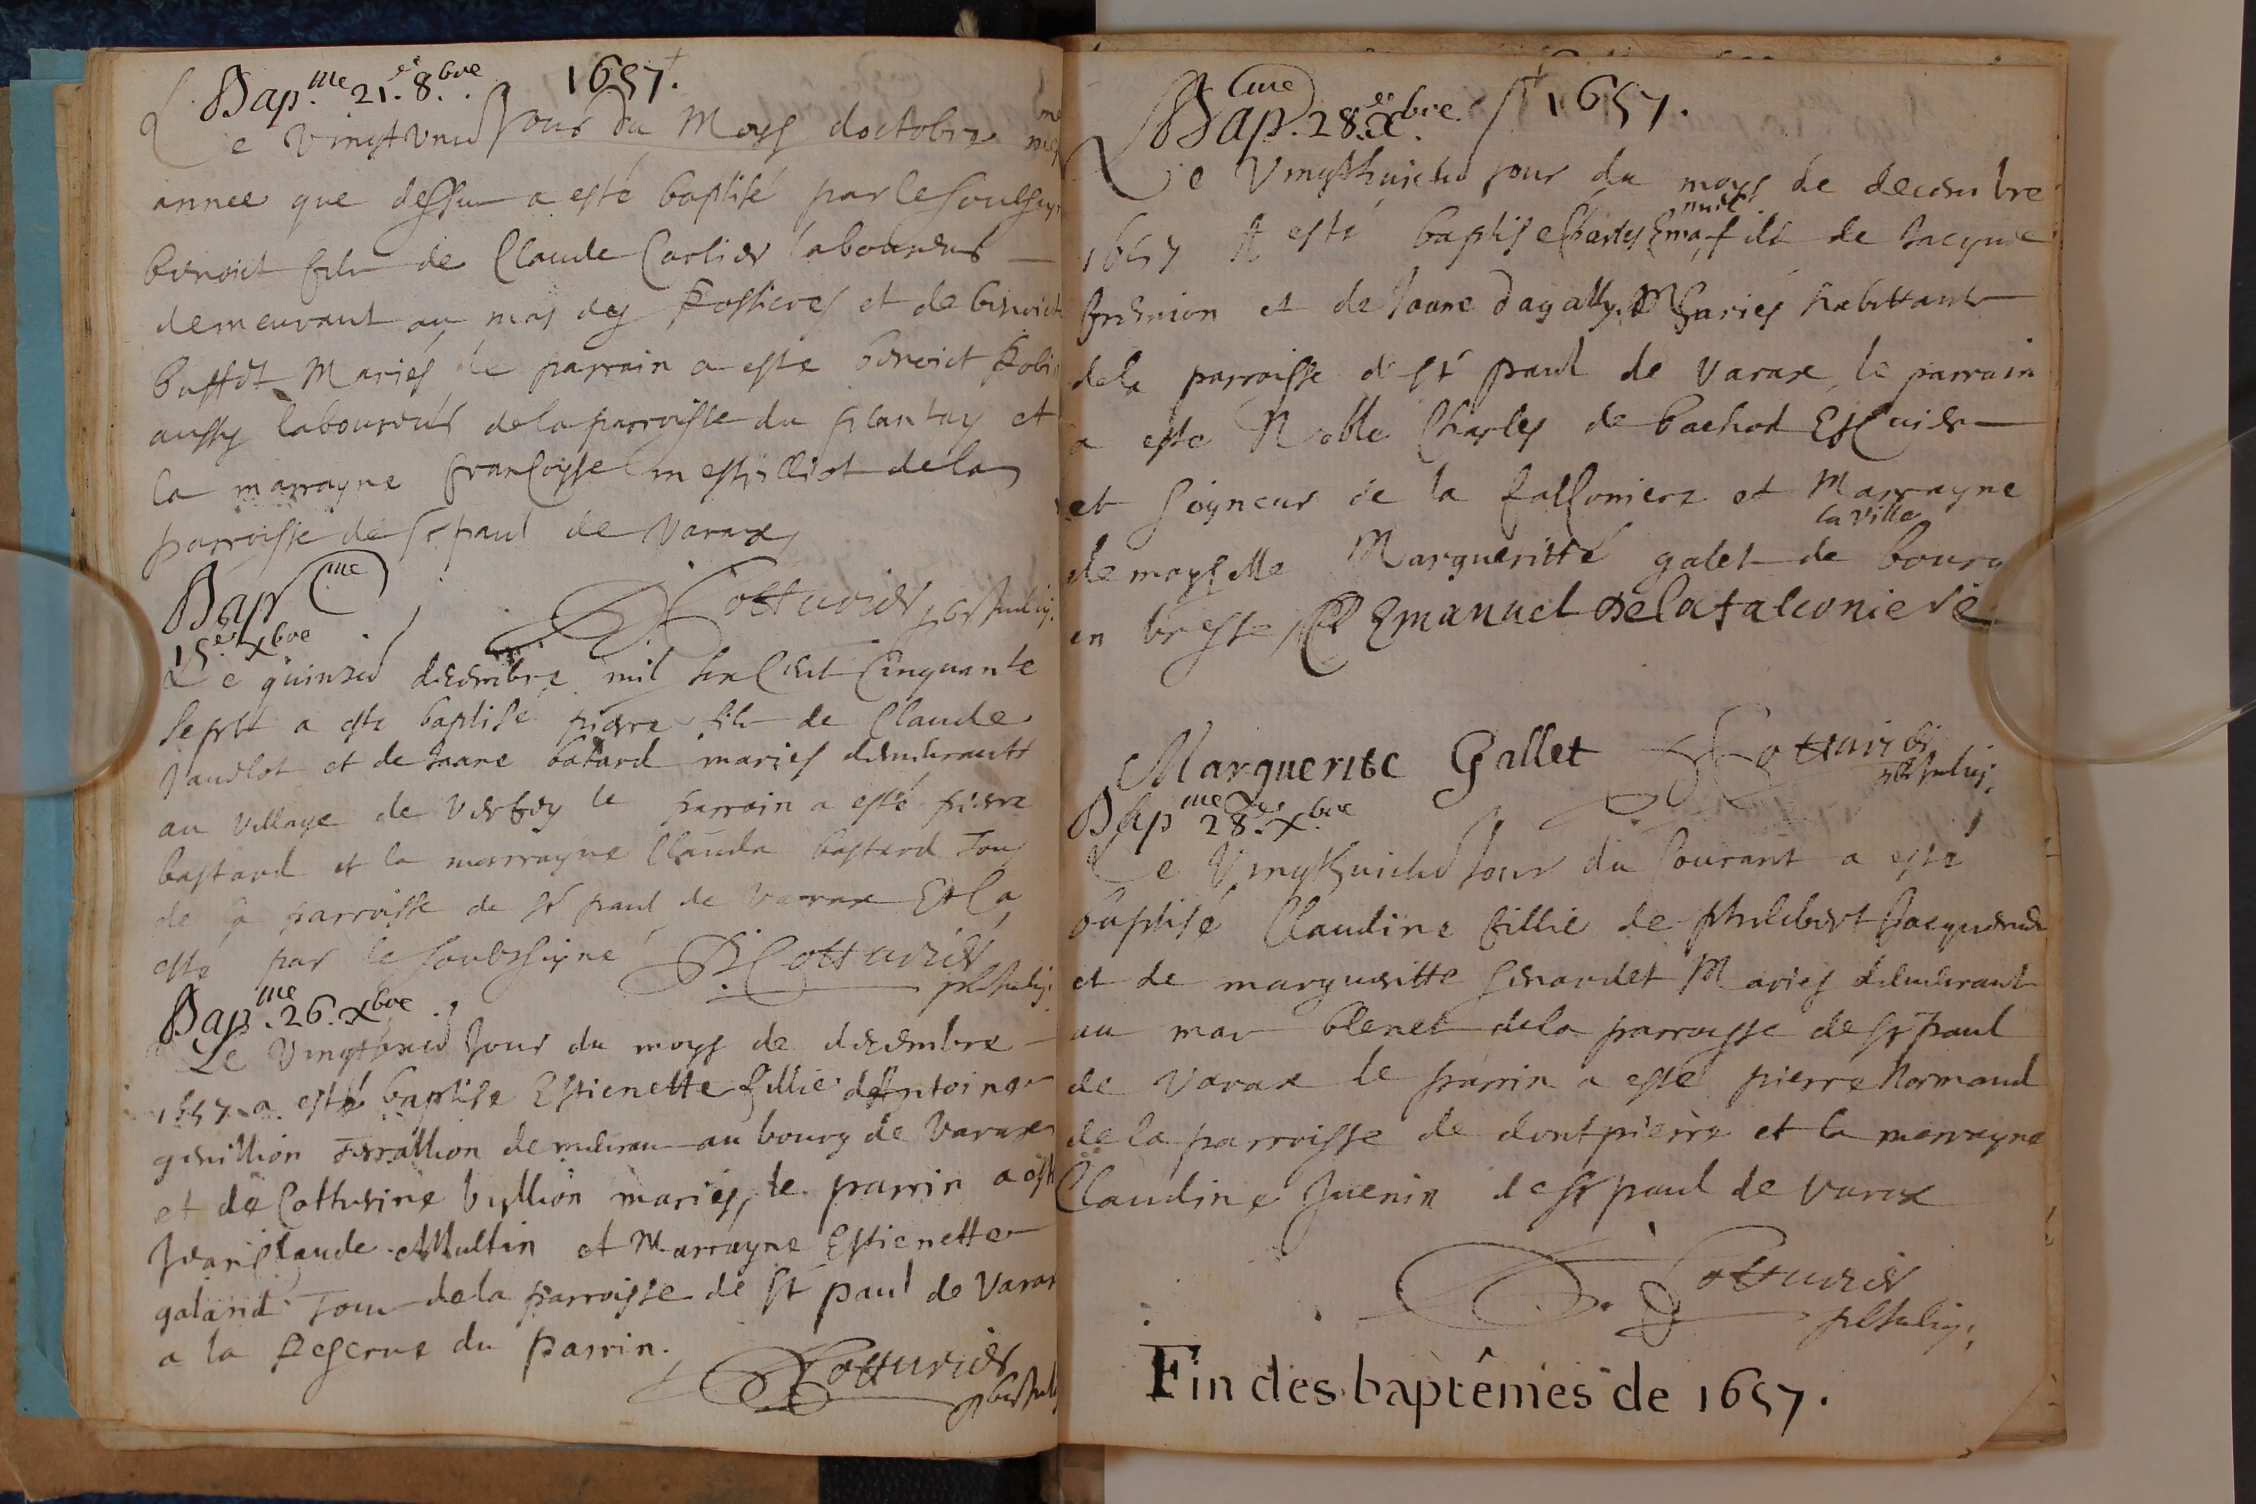 Bap.me 21.e 8.bre 1657.
Le vingt unie Jour du Moys doctobre
annee que dessus a esté baptisé par le soulsigne
benoict fils de Claude Carlier laboureur
demeurant au mas des Rossieres et de benoicte
buffet Mariés le parrain a este benoict Robin
aussy laboureur de la parroisse du plantay et
la marrayne francoyse mestrilliot de la
parroisse de st paul de Varax
Cotturier
Bapme
15.e xbre
Le quinzie decembre mil six Cent Cinquante
sept a este baptisé pierre fils de Claude
et de Jeane batard mariés demeurants
au village de Verfey le parrain a esté pierre
bastard et la marrayne Clauda bastard Tous
de la parroisse de st paul de Varax Et la
este par le soubsigné Cotturier
Bap.me 26. xbre
Le Vingt sixie Jour du moys de decembre
1657 a esté baptisé Estienette fillie dAntoine
demeurant au bourg de Varax
et de Catherine bullion mariés, le parrin a este
Jean Claude Multin et Marrayne Estienette
galand Tous de la parroisse de st paul de Varax
a la Reserve du Parrin.
Cotturier
Bapme 28.e xbre 1657.
Le Vingthuictie jour du moys de decembre
1657 A esté baptisé Charles Emanuel fils de Jacques
et de Jeane dagally Mariés habittants
de la parroisse de st paul de Varax, le parrain
a este Noble Charles de bachod Escuier
et seigneur de la falconiere et Marrayne
demoyselle Margueritte galet de la ville bourg
en bresse C Emanuel de la falconiere
Marguerite Gallet Cotturier
Bapme 28.e xbre
Le Vingthuictie Jour du Courant a esté
baptisé Claudine fillie de philibert Jacquemet
et de margueritte girardet Mariés demeurant
au mas blenet de la parroisse de st paul
de Varax le parrin a esté pierre Normand
de la parroisse de dontpierre et la marrayne
Claudine Juenin de st paul de Varax
Cotturier
Fin des baptêmes de 1657.